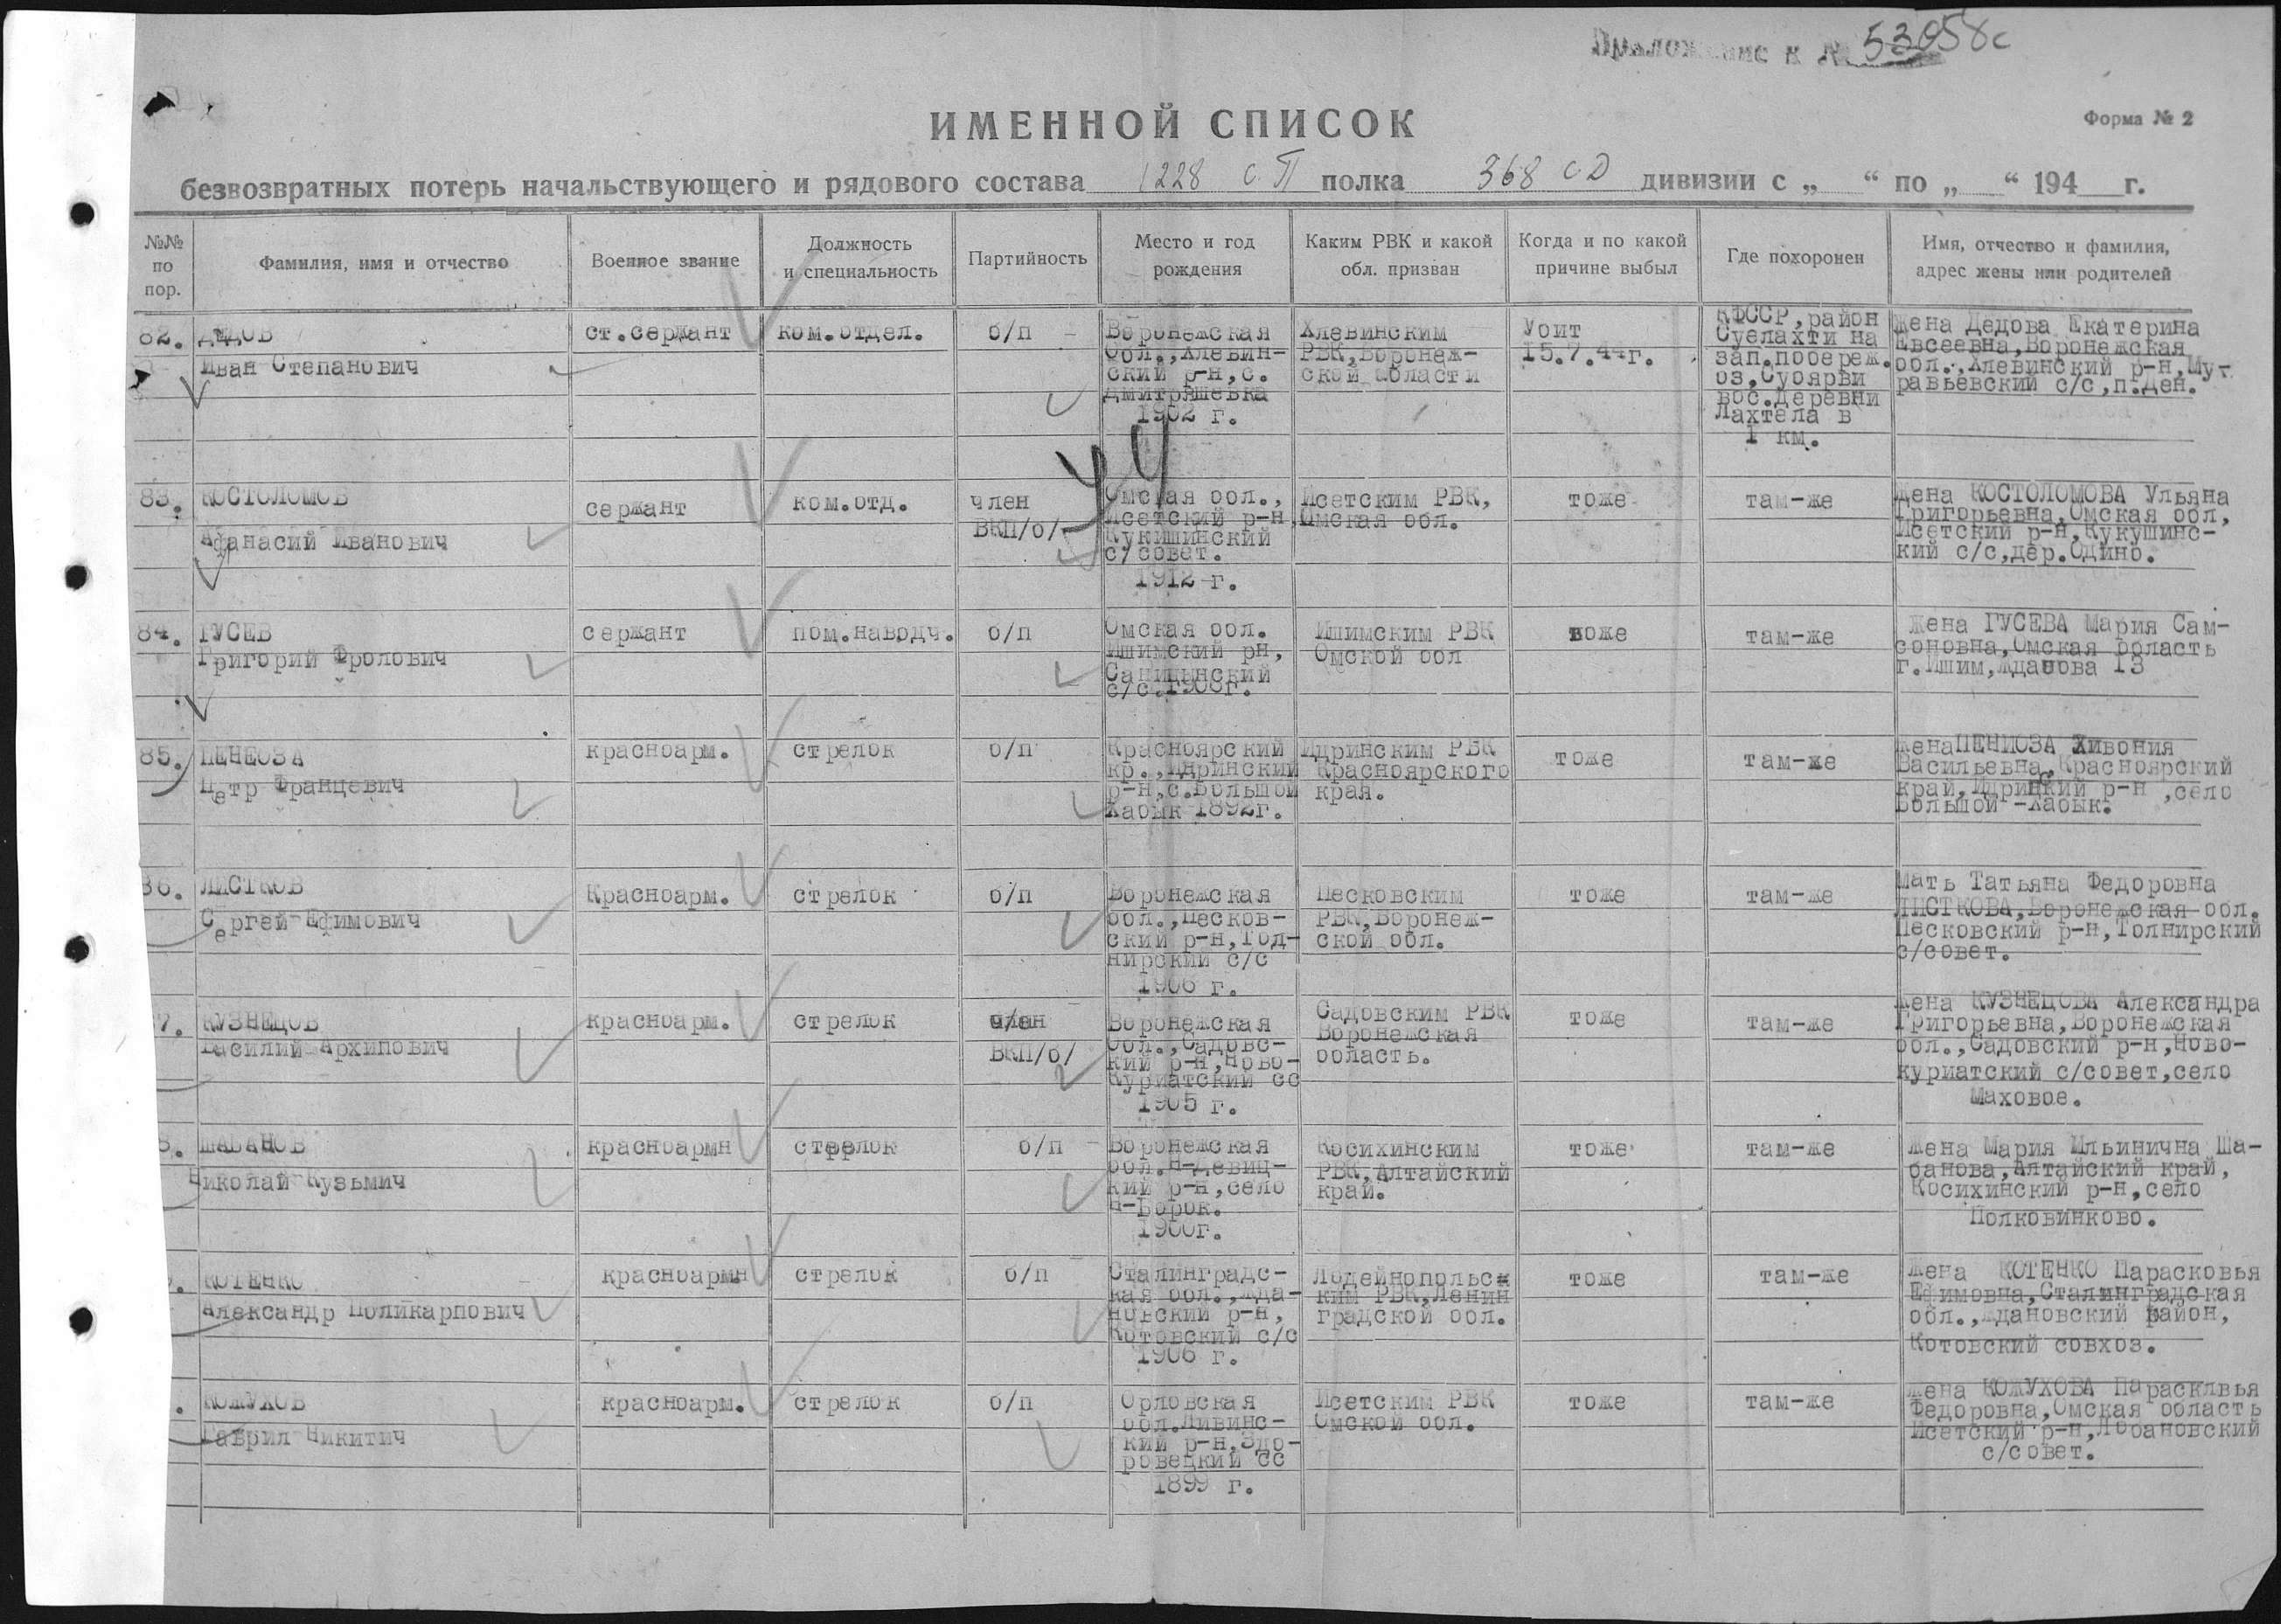 Приложение к № 53058с
ИМЕННОЙ СПИСОК
Форма № 2
безвозвратных потерь начальствующего и рядового состава 1228 сП полка 368 сД дивизии с „ “ по „ “ 194 г.
№№ по пор.
Фамилия, имя и отчество
Военное звание
Должность и специальность
Партийность
Место и год рождения
Каким РВК и какой обл. призван
Когда и по какой причине выбыл
Где похоронен
Имя, отчество и фамилия, адрес жены или родителей
82.
ДЕДОВ
Иван Степанович
ст.сержант
ком.отдел.
б/п
Воронежская
обл.,Хлевин-
ский р-н,с.
Дмитряшевка
1902 г.
Хлевинским
РВК,Воронеж-
ской области
Убит
15.7.44г.
КФССР,район
Суелахти на
зап.побереж.
оз.Суоярви
вос.деревни
Лахтела в
1 км.
Жена Дедова Екатерина
Евсеевна,Воронежская
обл.,Хлевинский р-н,Мут
равьевский с/с,п.Ден.
83.
КОСТОЛОМОВ
Афанасий Иванович
сержант
ком.отд.
член
ВКП/б/
Омская обл.,
Исетский р-н,
Кукишинский
с/совет.
1912 г.
Исетским РВК,
Омская обл.
тоже
там-же
Жена КОСТОЛОМОВА Ульяна
Григорьевна,Омская обл,
Исетский р-н,Кукушинс-
кий с/с,дер.Одино.
84.
ГУСЕВ
Григорий Фролович
сержант
пом.наводч.
б/п
Омская обл.
Ишимский рн,
с/с.1906г.
Ишимским РВК
Омской обл
тоже
там-же
Жена ГУСЕВА Мария Сам-
соновна,Омская область
г.Ишим,Жданова 13
85.
ПЕНЕОЗА
Петр Францевич
красноарм.
стрелок
б/п
Красноярский
кр.,Идринский
р-н,с.Большой
Хабык 1892г.
Идринским РВК
Красноярского
края.
тоже
там-же
Жена ПЕНИОЗА Хивония
Васильевна,Красноярский
край,Идринский р-н ,село
Большой -Хабык.
86.
ЛИСТКОВ
Сергей Ефимович
Красноарм.
стрелок
б/п
Воронежская
обл.,Песков-
ский р-н,Год-
нирский с/с
1906 г.
Песковским
РВК,Воронеж-
ской обл.
тоже
там-же
Мать Татьяна Федоровна
ЛИСТКОВА,Воронежская обл.
Песковский р-н,Толнирский
с/совет.
7.
КУЗНЕЦОВ
Василий Архипович
красноарм.
стрелок
член
ВКП/б/
Воронежская
обл.,Садовс-
кий р-н,Ново-
Куриатский сс
1905 г.
Садовским РВК
Воронежская
область.
тоже
там-же
Жена КУЗНЕЦОВА Александра
Григорьевна,Воронежская
обл.,Садовский р-н,Ново-
куриатский с/совет,село
Маховое.
8.
ШАБАНОВ
Николай Кузьмич
красноармн
стрелок
б/п
Воронежская
обл.Н-Девиц-
кий р-н,село
Н-Борок.
1900г.
Косихинским
РВК,Алтайский
край.
тоже
там-же
Жена Мария Ильинична Ша-
банова,Алтайский край,
Косихинский р-н,село
Полковинково.
КОТЕНКО
Александр Поликарпович
красноармн
стрелок
б/п
Сталинградс-
кая обл.,Жда-
новский р-н,
Котовский с/с
1906 г.
Лодейнопольск
ким РВК,Ленин
градской обл.
тоже
там-же
Жена КОТЕНКО Парасковья
Ефимовна,Сталинградская
обл.,Ждановский район,
Котовский совхоз.
КОЖУХОВ
Гаврил Никитич
красноарм.
стрелок
б/п
Орловская
обл.Ливинс-
кий р-н,Здо-
ровецкий сс
1899 г.
Исетским РВК
Омской обл.
тоже
там-же
Жена КОЖУХОВА Парасклвья
Федоровна,Омская область
Исетский р-н,Лобановский
с/совет.